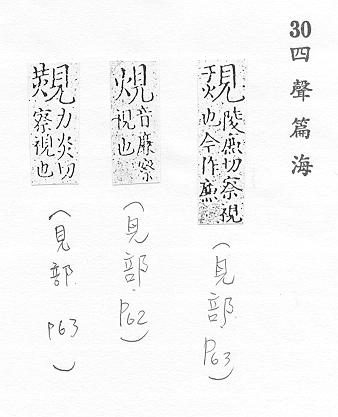 30 四聲篇海
覝
陵廉切察視
也今作廉
(見部 P63)
音廉察
視也
(見部 P62)
力炎切
察視也
(見部 P63)